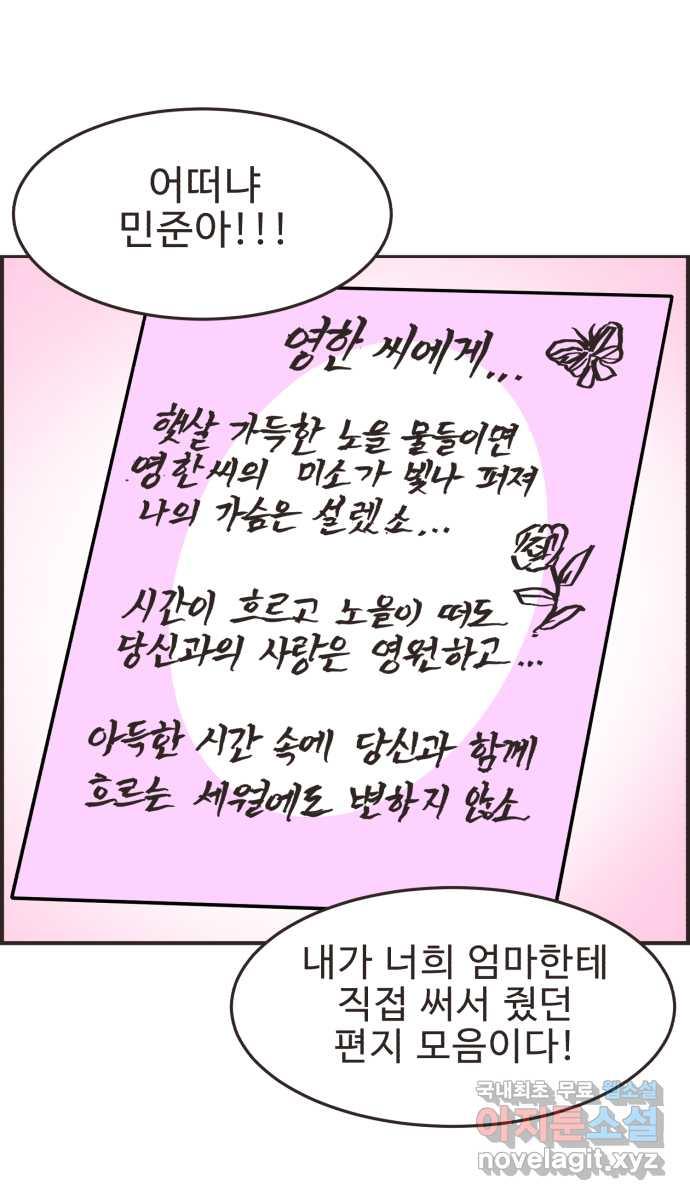 어떠냐
민준아!!!
영한 씨에게...
햇살 가득한 노을 물들이면
영한씨의 미소가 빛나 퍼져
나의 가슴은 설렜소...
시간이 흐르고 노을이 떠도
당신과의 사랑은 영원하고...
아득한 시간 속에 당신과 함께
흐르는 세월에도 변하지 않소
내가 너희 엄마한테
직접 써서 줬던
편지 모음이다!
국내최초 무료 웹소설
아지툰소설
novelagit.xyz